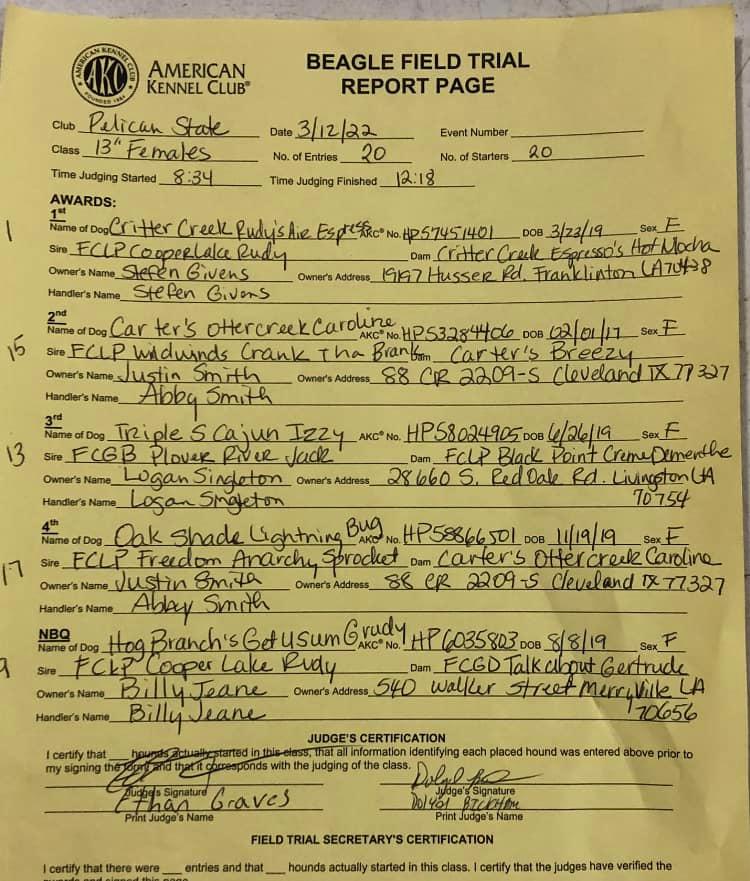 AMERICAN KENNEL CLUB
AKC
FOUNDED 1884
AMERICAN
KENNEL CLUB®
BEAGLE FIELD TRIAL
REPORT PAGE
Club Pelican State Date 3/12/22 Event Number
Class 13" Females No. of Entries 20 No. of Starters 20
Time Judging Started 8:34 Time Judging Finished 12:18
AWARDS:
1st
1 Name of Dog Critter Creek Rudy's Air Espress AKC® No. HP57451401 DOB 3/23/19 Sex F
Sire FCLP Cooper Lake Rudy Dam Critter Creek Espresso's Hot Mocha
Owner's Name Stefen Givens Owner's Address 19197 Husser Rd. Franklinton LA 70438
Handler's Name Stefen Givens
2nd
Name of Dog Carter's Ottercreek Caroline AKC® No. HP53284406 DOB 02/01/17 Sex F
15 Sire FCLP Wildwinds Crank Tha Brank Dam Carter's Breezy
Owner's Name Justin Smith Owner's Address 88 CR 2209-S Cleveland TX 77327
Handler's Name Abby Smith
3rd
Name of Dog Triple S Cajun Izzy AKC® No. HP58024905 DOB 6/26/19 Sex F
13 Sire FCGB Plover River Jack Dam FCLP Black Point Creme Dementhe
Owner's Name Logan Singleton Owner's Address 28660 S. Red Oak Rd. Livingston LA
Handler's Name Logan Singleton 70754
4th
Name of Dog Oak Shade Lightning Bug AKC® No. HP58866501 DOB 11/19/19 Sex F
17 Sire FCLP Freedom Anarchy Sprocket Dam Carter's Ottercreek Caroline
Owner's Name Justin Smith Owner's Address 88 CR 2209-S Cleveland TX 77327
Handler's Name Abby Smith
NBQ
Name of Dog Hog Branch's Get U Sum Grudy AKC® No. HP6035803 DOB 8/8/19 Sex F
9 Sire FCLP Cooper Lake Rudy Dam FCGD Talk about Gertrude
Owner's Name Billy Jeane Owner's Address 540 Walker Street Merryville LA
Handler's Name Billy Jeane 70656
JUDGE'S CERTIFICATION
I certify that hounds actually started in this class, that all information identifying each placed hound was entered above prior to
my signing the form and that it corresponds with the judging of the class.
Judge's Signature Judge's Signature
Ethan Graves
Print Judge's Name Print Judge's Name
FIELD TRIAL SECRETARY'S CERTIFICATION
I certify that there were entries and that hounds actually started in this class. I certify that the judges have verified the
awards and signed this page.